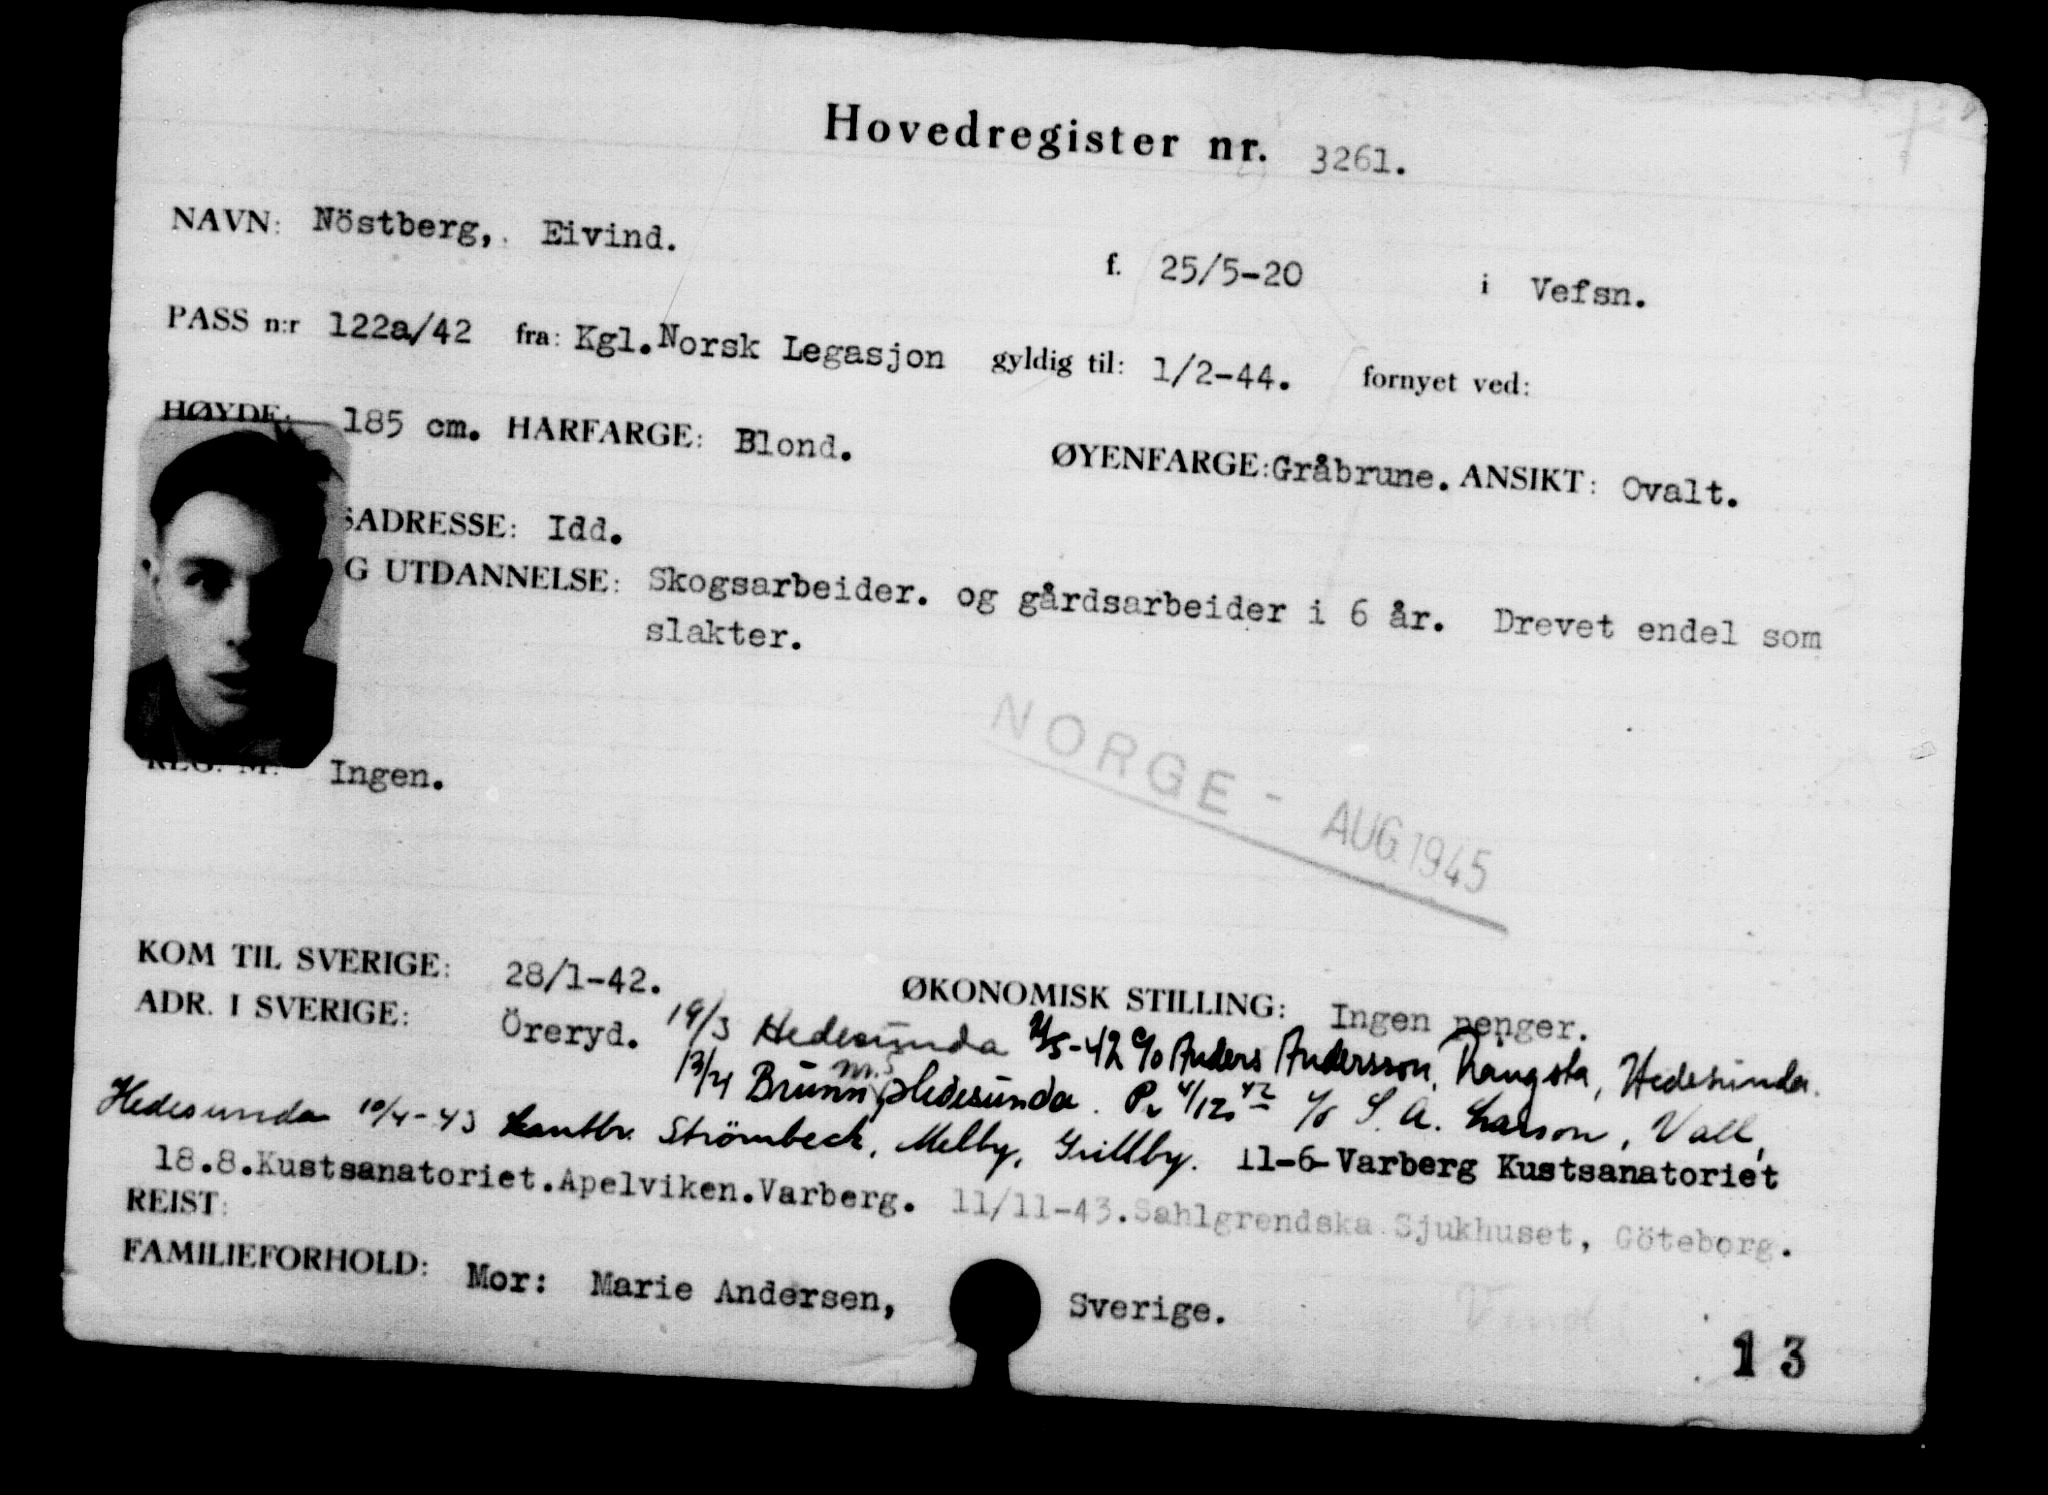 Hovedregister nr. 3261.
NAVN: Nöstberg, Eivind.
f. 25/5-20 i Vefsn.
PASS n:r 122a/42 fra: Kgl.Norsk Legasjon gyldig til: 1/2-44. fornyet ved:
HØYDE: 185 cm. HARFARGE: Blond. ØYENFARGE: Gråbrune. ANSIKT: Ovalt.
SADRESSE: Idd.
G UTDANNELSE: Skogsarbeider. og gårdsarbeider i 6 år. Drevet endel som
slakter.
NORGE - AUG 1945
REG. M. Ingen.
KOM TIL SVERIGE: 28/1-42. ØKONOMISK STILLING: Ingen penger.
ADR. I SVERIGE: Öreryd. 19/3 Hedesunda -42 c/o Anders Andersson, Hedesunda.
Brunn Hedesunda. 4/12 42 c/o S. A. Larson, Vall,
Hedesunda 10/4-43 Lantbr. Strömbeck, Melby, Grillby. 11-6-Varberg Kustsanatoriet
18.8.Kustsanatoriet.Apelviken.Varberg. 11/11-43.Sahlgrendska Sjukhuset, Göteborg.
REIST:
FAMILIEFORHOLD: Mor: Marie Andersen, Sverige.
13